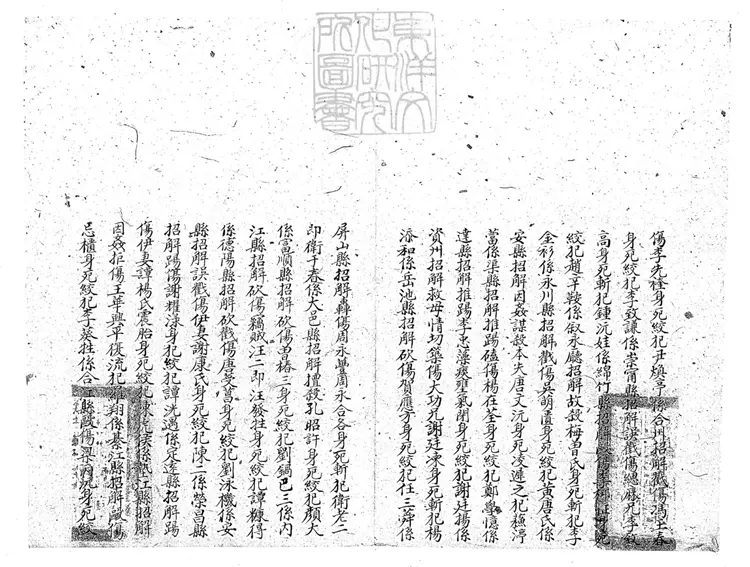 傷李先桂身死絞犯尹煥亭係合州招解戳傷馮上春
身死絞犯李致謙係崇甯縣招解誤戳傷總麻兄李致
高身死斬犯鍾沅娃係綿竹縣招解
絞犯趙平鞍係敘永廳招解故殺梅曾氏身死斬犯李
全衫係永川縣招解戳傷吳萌薑身死絞犯黃唐氏係
安縣招解因姦謀殺本夫唐文沅身死凌遲之犯穆渟
當係渠縣招解推踢磕傷楊在荃身死絞犯鄭學憶係
達縣招解推踢李忠藻痰壅氣閉身死絞犯謝廷揚係
資州招解救母情切築傷大功兄謝廷凍身死斬犯楊
添和係岳池縣招解砍傷賀應亨身死絞犯任三舜係
屏山縣招解轟傷周永萬周永合各身死斬犯衛老二
即衛千春係大邑縣招解擅殺孔昭許身死絞犯顏大
係富順縣招解砍傷曾椿三身死絞犯劉鍋巴三係內
江縣招解砍傷竊賊汪二即汪發拄身死絞犯譚糠得
係德陽縣招解砍戳傷唐受喜身死絞犯劉泳機係安
縣招解誤戳傷伊妻謝康氏身死絞犯陳二係榮昌縣
招解踢傷謝耀溁身死絞犯譚洸過係定遠縣招解踢
傷伊妻譚楊氏震胎身死絞犯陳 係 江縣招解
因姦拒傷王華興平復流犯 翔係綦江縣招解 傷
忌櫃身死絞犯李葵拄係合江縣毆傷梁 身死絞
東洋文化研究所圖書